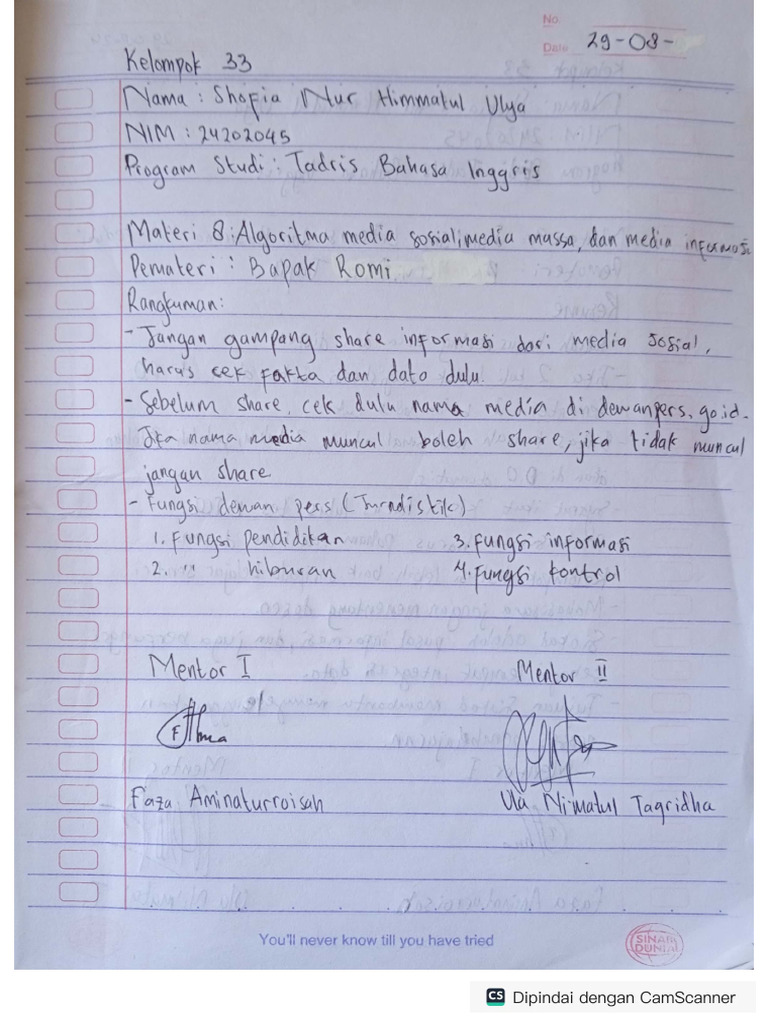 No.
Date 29-08-
Kelompok 33
Nama : Shofia Nur Himmatul Ulya
NIM : 24202045
Program Studi : Tadris Bahasa Inggris
Materi 8 : Algoritma media sosial, media massa, dan media informasi
Pemateri : Bapak Romi
Rangkuman:
- Jangan gampang share informasi dari media sosial,
harus cek fakta dan data dulu.
- Sebelum share, cek dulu nama media di dewanpers.go.id.
Jika nama media muncul boleh share, jika tidak muncul
jangan share
- Fungsi dewan pers (Jurnalistik)
1. Fungsi pendidikan 3. Fungsi informasi
2. " hiburan 4. Fungsi kontrol
Mentor I Mentor II
Faza Aminaturroisah Ula Ni'matul Tagridha
You'll never know till you have tried
SINAR DUNIA
CS Dipindai dengan CamScanner